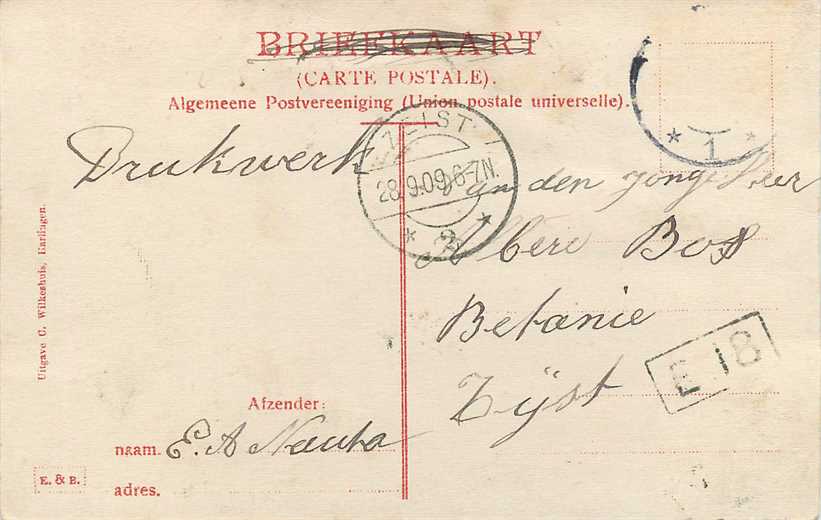 BRIEFKAART
(CARTE POSTALE).
Algemeene Postvereeniging (Union postale universelle).
Drukwerk
ZEIST
28.9.09.6-7N.
* 2 *
* 1 *
Aan den jonge Heer
Albert Bos
Betanie
Zÿst
E 18
Uitgave C. Wilkeshuis, Harlingen.
Afzender:
naam. E. A Nauta
adres.
E. & B.